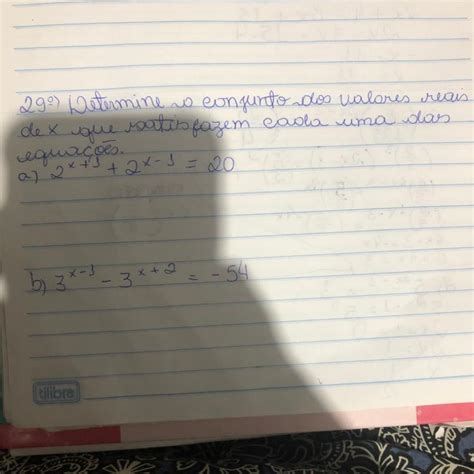 29º) Determine o conjunto dos valores reais
de x que satisfazem cada uma das
equações.
a) 2^{x+1} + 2^{x-1} = 20
b) 3^{x-1} - 3^{x+2} = -54
tilibra